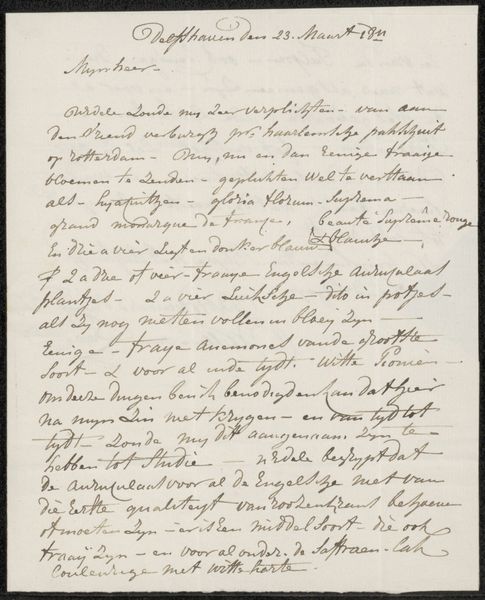 Delfshaven den 23. Maart 1811
Mynheer -
UEdele zoude my zeer verplichten - van aan
den vriend verburgh pr haarlemsche pakschuit
op rotterdam - nu en dan Eenige fraaije
bloemen te zenden - geplukten wel te verstaan
als - hyacintzen - gloria florum - Suprema -
grand monarque de france, beauté Suprême rouge
En drie a vier Ligt en donker blauw & blaintze -
2 a drie of vier - fraaije Engelsche auriculaas
plantjes - 2 a vier Luiksche - dito in potjes -
als zy nog niet ten vollen in bloey zyn -
Eenige - fraye anemones van de grootste
Soort - & voor al in de tydt. witte Pioenen
om deeze dingen ben ik benodigd en kan dat hier
na myn zin niet krygen - en van tyd tot
tydt - zoude my dit aangenaam zyn te
hebben tot Studie - UEdele begrypt dat
de auriculaas voor al de Engelsche niet van
die Eerste qualiteyt van rooskrans behoeve
of moeten zyn - er is een middel Soort - die ook
fraaij zyn - en voor al onder de Saffraan - Lak
Couleurige met witte harte.